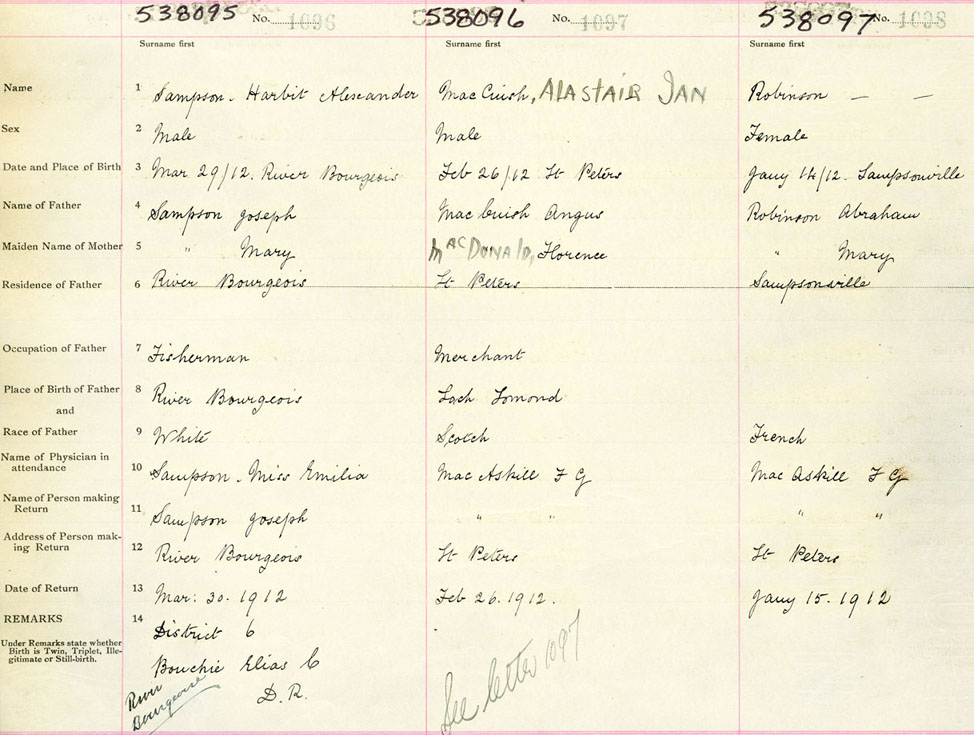 538095 No. 1096 538096 No. 1097 538097 No. 1098
Surname first Surname first Surname first
Name 1 Sampson. Harbit Alexander MacCuish, ALASTAIR IAN Robinson — —
Sex 2 Male Male Female
Date and Place of Birth 3 Mar 29/12. River Bourgeois Feb 26/12 St Peters Jany 14/12. Sampsonville
Name of Father 4 Sampson Joseph MacCuish Angus Robinson Abraham
Maiden Name of Mother 5 " Mary MACDONALD, Florence " Mary
Residence of Father 6 River Bourgeois St Peters Sampsonville
Occupation of Father 7 Fisherman Merchant
Place of Birth of Father 8 River Bourgeois Loch Lomond
and
Race of Father 9 White Scotch French
Name of Physician in
attendance 10 Sampson. Miss Emilia MacAskill F G MacAskill F G
Name of Person making
Return 11 Sampson Joseph " " " "
Address of Person mak-
ing Return 12 River Bourgeois St Peters St Peters
Date of Return 13 Mar: 30. 1912 Feb 26. 1912. Jany 15. 1912
REMARKS 14 District 6
Under Remarks state whether
Birth is Twin, Triplet, Ille-
gitimate or Still-birth.
Bouchie Elias C
D.R.
River
Bourgeoise
See letter 1097